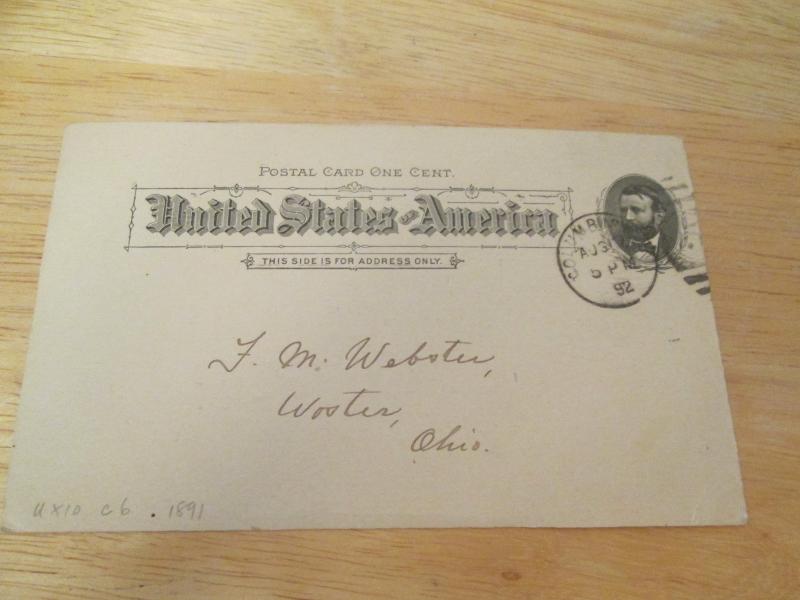 POSTAL CARD ONE CENT.
United States of America
THIS SIDE IS FOR ADDRESS ONLY.
5 PM
92
F. M. Webster,
Woster,
Ohio.
UX10 c6 . 1891